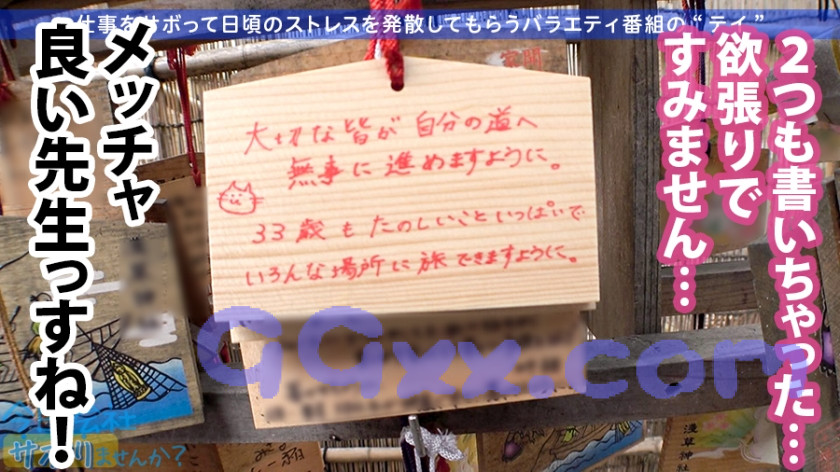 仕事をサボって日頃のストレスを発散してもらうバラエティ番組の“テイ”
2つも書いちゃった…
欲張りで
すみません…
大切な皆が自分の道へ
無事に進めますように。
33歳もたのしいこといっぱいで
いろんな場所に旅できますように。
メッチャ
良い先生っすね!
GGxx.com
サボりませんか?
浅草神社